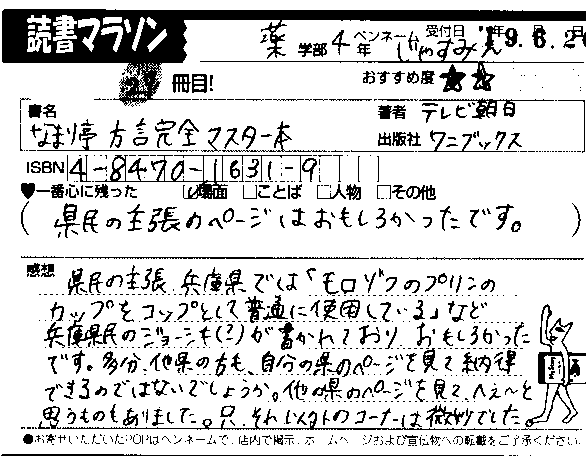 読書マラソン
薬 学部 4 年 ペンネーム じゃすみん 受付日 '19.6.20
21 冊目!
おすすめ度 ☆☆
書名 なまり亭 方言完全マスター本
著者 テレビ朝日
出版社 ワニブックス
ISBN 4-8470-1631-9
♥一番心に残った ☑場面 □ことば □人物 □その他
(県民の主張のページはおもしろかったです。)
感想 県民の主張、兵庫県では「モロゾフのプリンの
カップをコップとして普通に使用している」など
兵庫県民のジョーシキ(?)が書かれており、おもしろかった
です。多分、他県の方も、自分の県のページを見て納得
できるのではないでしょうか。他の県のページを見て、へぇ〜と
思うものもありました。只、それ以外のコーナーは微妙でした。
●お寄せいただいたPOPはペンネームで、店内で掲示、ホームページおよび宣伝物への転載をご了承ください。